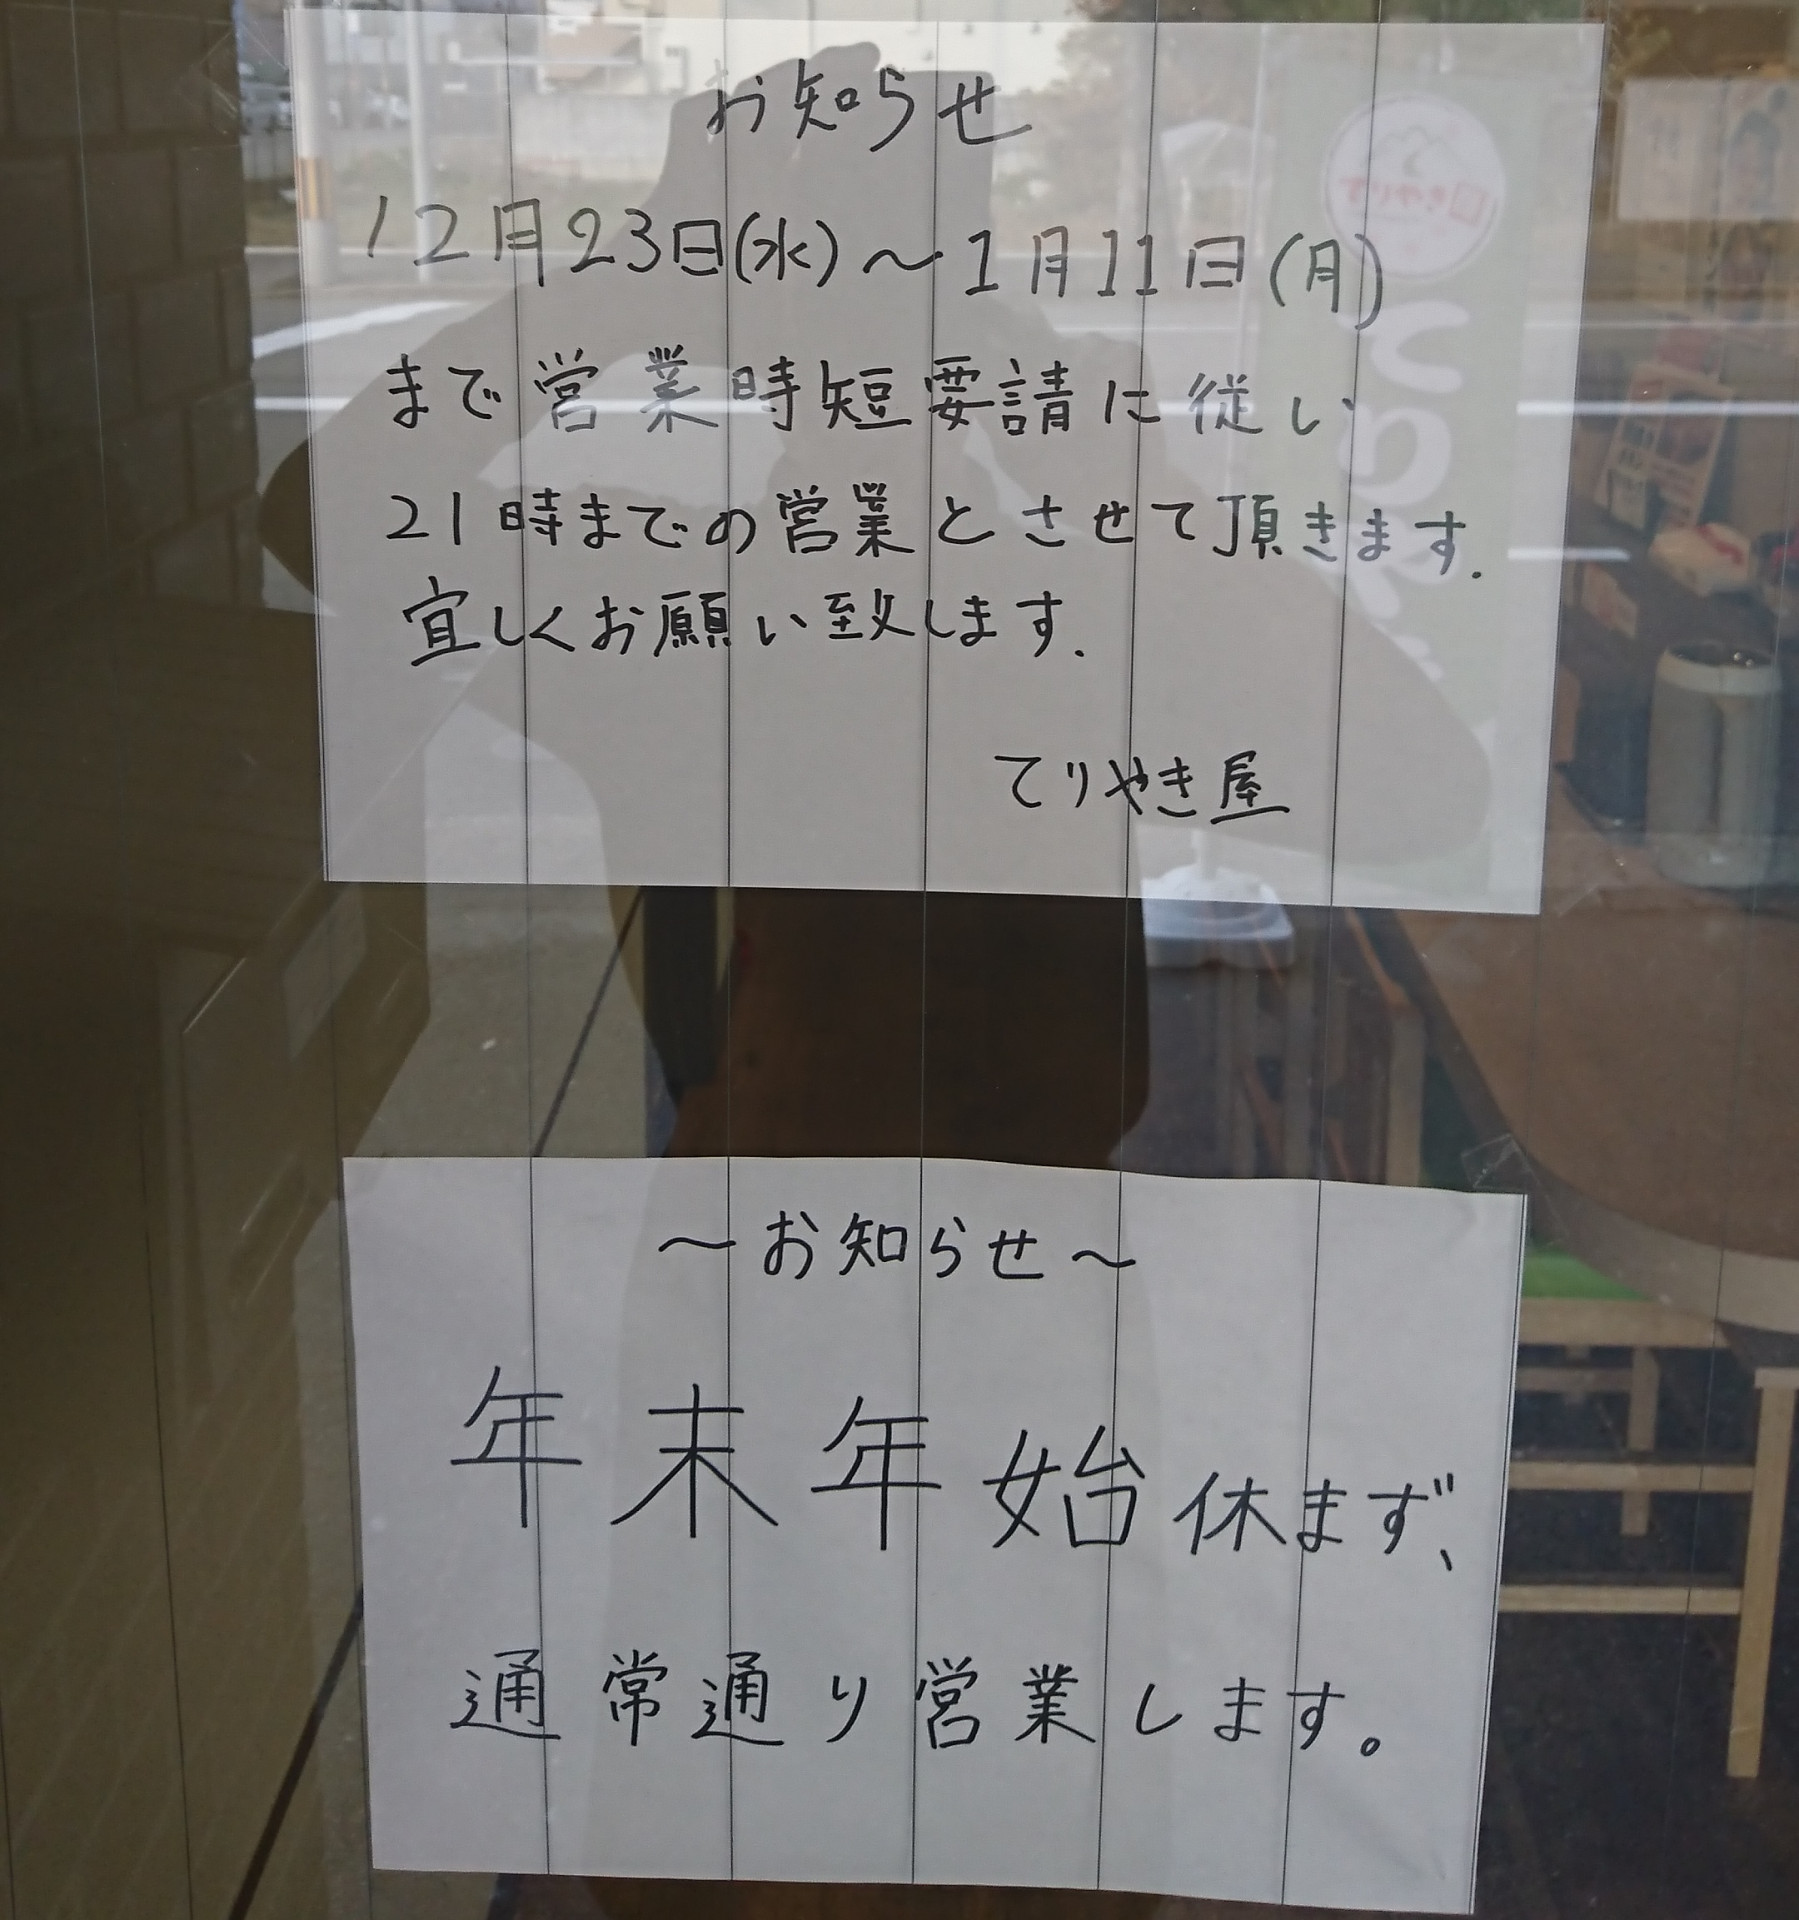 お知らせ
12月23日(水)～1月11日(月)
まで営業時短要請に従い
21時までの営業とさせて頂きます.
宜しくお願い致します.
てりやき屋
～お知らせ～
年末年始休まず、
通常通り営業します。